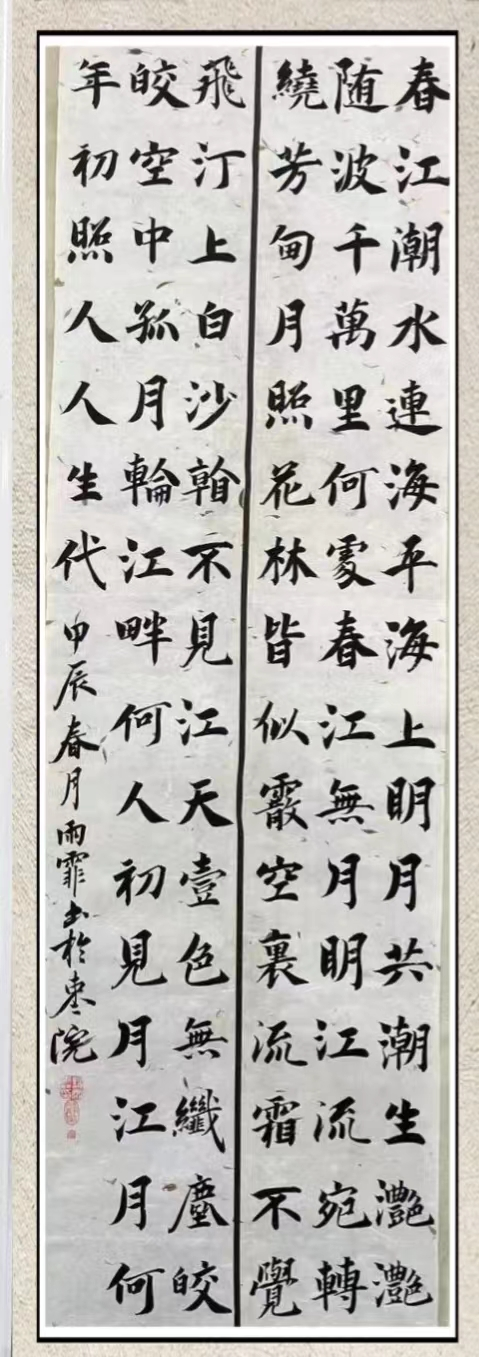 春江潮水連海平海上明月共潮生灧灧
随波千萬里何處春江無月明江流宛轉
繞芳甸月照花林皆似霰空裏流霜不覺
飛汀上白沙看不見江天壹色無纖塵皎
皎空中孤月輪江畔何人初見月江月何
年初照人人生代
甲辰春月雨霏書於枣院